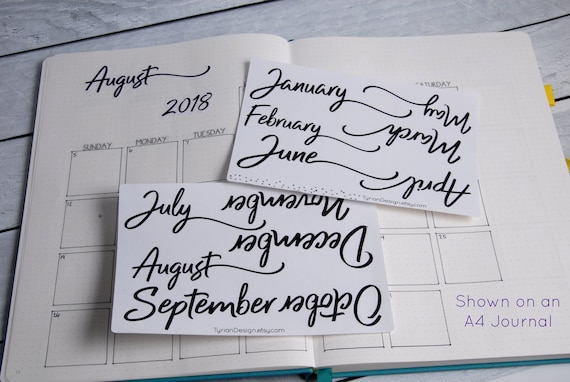 August
2018
SUNDAY MONDAY TUESDAY
SATURDAY
5 6 7
12
19
26
25
January
February
June
May
March
April
TyrianDesign.etsy.com
July
August
September
November
December
October
TyrianDesign.etsy.com
Shown on an
A4 Journal